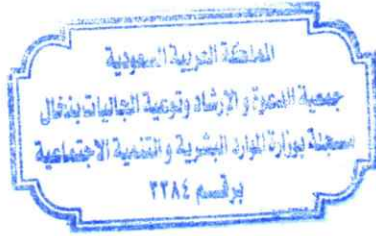 المملكة العربية السعودية
جمعية الدعوة و الإرشاد وتوعية الجاليات بنخال
مسجلة بوزارة الموارد البشرية و التنمية الاجتماعية
برقم ٢٢٨٤